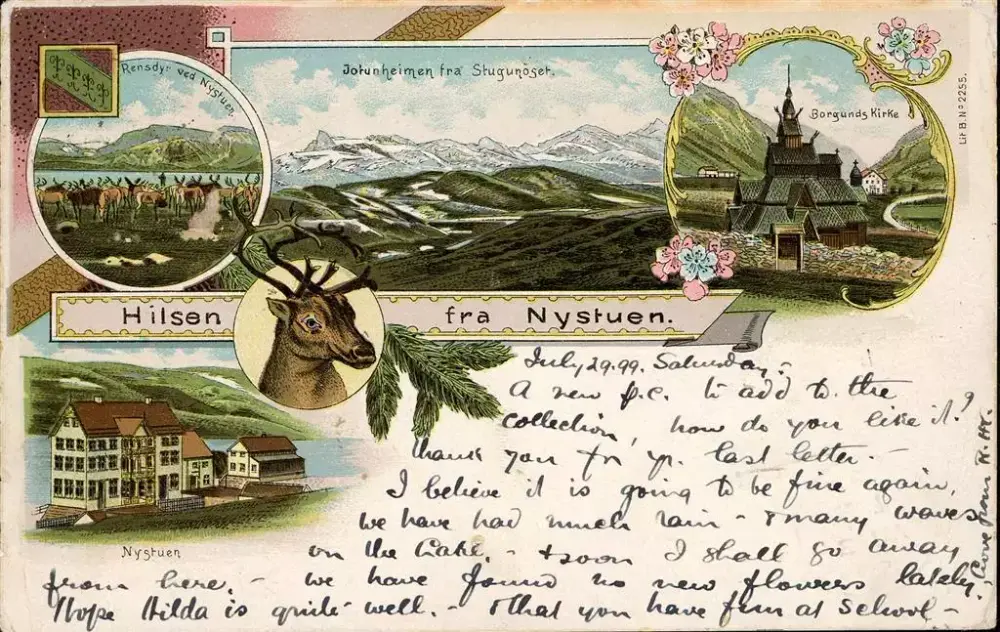 Rensdyr ved Nystuen.
Jotunheimen fra Stugunöset.
Borgunds Kirke
Lit B. No 2255.
Hilsen fra Nystuen.
Nystuen
July 29.99. Saturday.-
A new p.c. to add to the
collection, how do you like it?
thank you for yr. last letter.-
I believe it is going to be fine again,
we have had much rain - & many waves
on the Lake.- & soon I shall go away
from here.- we have found no new flowers lately.
Hope Hilda is quite well.- & that you have fun at school-
Love from